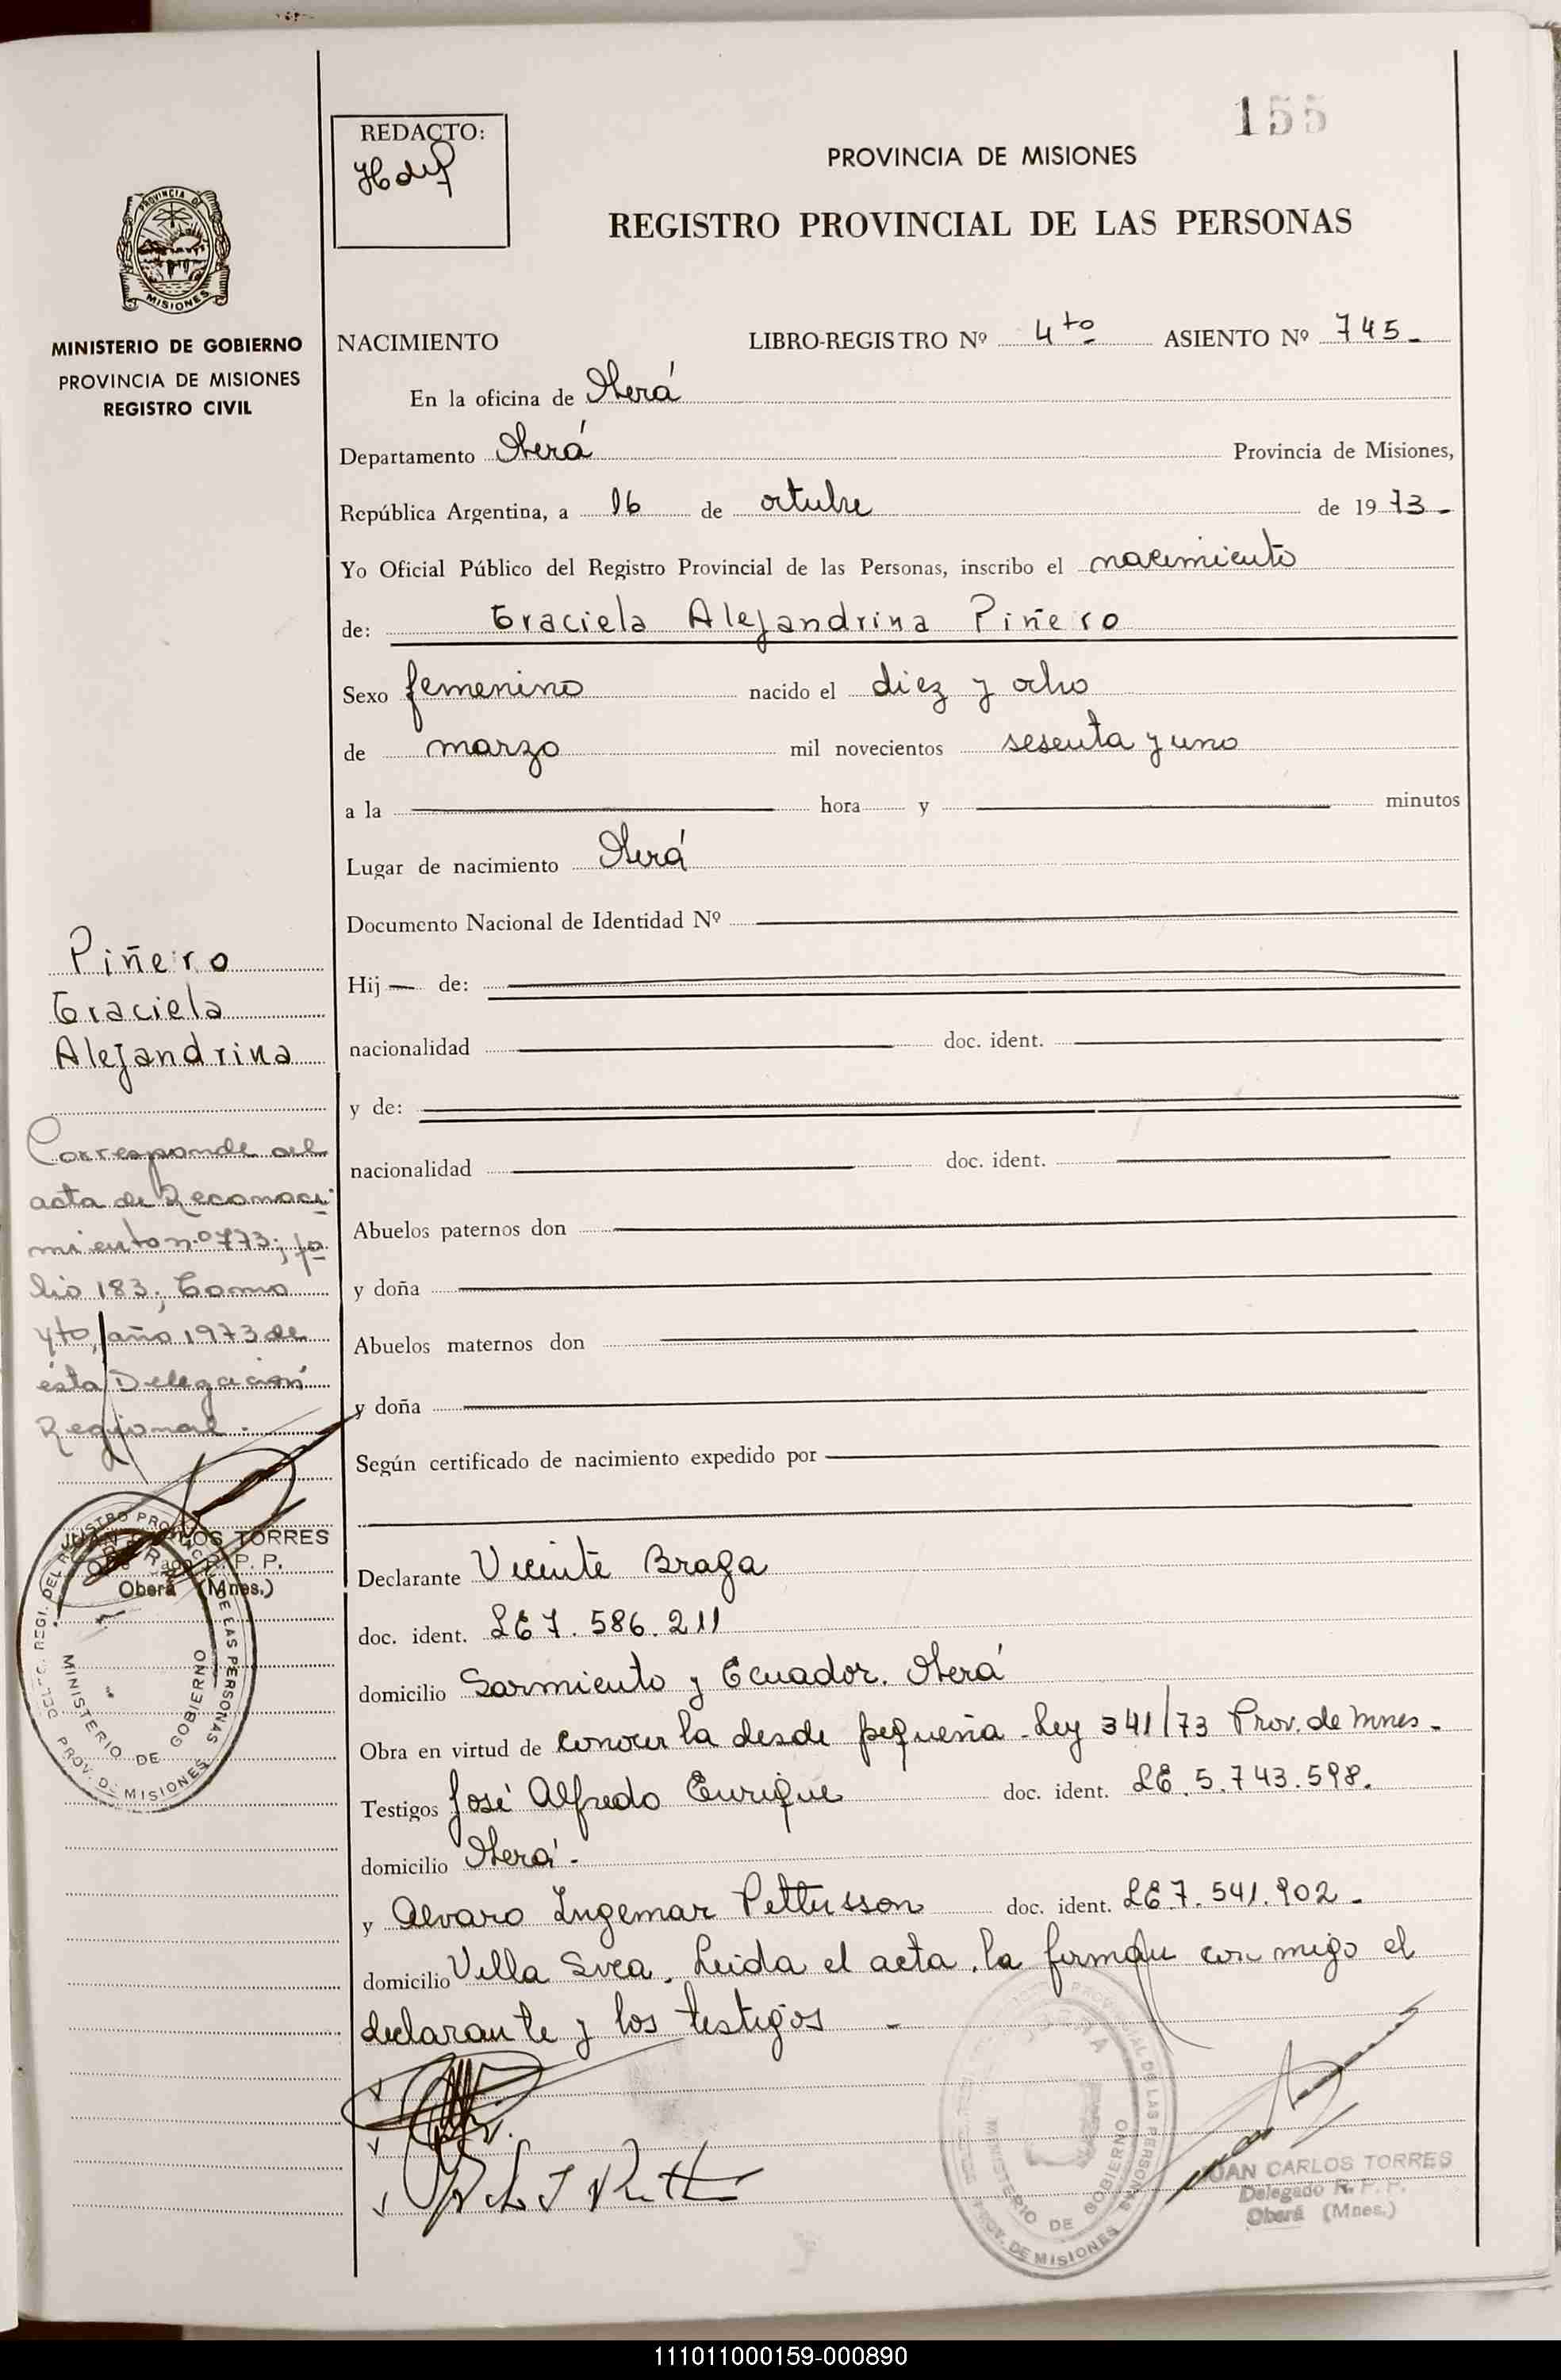 155
REDACTO:
PROVINCIA DE MISIONES
REGISTRO PROVINCIAL DE LAS PERSONAS
PROVINCIA DE
MISIONES
MINISTERIO DE GOBIERNO
PROVINCIA DE MISIONES
REGISTRO CIVIL
NACIMIENTO LIBRO-REGISTRO Nº 4to ASIENTO Nº 745-
En la oficina de Oberá
Departamento Oberá Provincia de Misiones,
República Argentina, a 16 de octubre de 1973-
Yo Oficial Público del Registro Provincial de las Personas, inscribo el nacimiento
de: Graciela Alejandrina Piñero
Sexo femenino nacido el diez y ocho
de marzo mil novecientos sesenta y uno
a la hora y minutos
Lugar de nacimiento Oberá
Documento Nacional de Identidad Nº
Hij de:
nacionalidad doc. ident.
y de:
nacionalidad doc. ident.
Abuelos paternos don
y doña
Abuelos maternos don
y doña
Según certificado de nacimiento expedido por
Declarante Vicente Braga
doc. ident. LE 7.586.211
domicilio Sarmiento y Ecuador. Oberá
Obra en virtud de conocer la desde pequeña - Ley 341/73 Prov. de Mnes-
Testigos José Alfredo Enrique doc. ident. LE 5.743.598.
domicilio Oberá-
y Alvaro Ingemar Pettersson doc. ident. LE 7.541.902-
domicilio Villa Svea. Leida el acta, la firman con migo el
declarante y los testigos -
Piñero
Graciela
Alejandrina
Corresponde al
acta de Reconoci-
miento nº 773; fo
lio 183; Tomo
4to, año 1973 de
ésta Delegación
Regional.
JUAN CARLOS TORRES
R. P. P.
Oberá (Mnes.)
DEL REGISTRO PROVINCIAL DE LAS PERSONAS
MINISTERIO DE GOBIERNO
PROV. DE MISIONES
OBERA
PROVINCIAL DE LAS PERSONAS
MINISTERIO DE GOBIERNO
PROV. DE MISIONES
JUAN CARLOS TORRES
Delegado R. P. P.
Oberá (Mnes.)
111011000159-000890